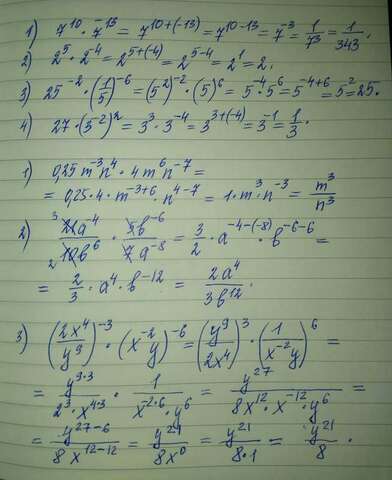 1) 7^10 · 7^-13 = 7^(10+(-13)) = 7^(10-13) = 7^-3 = 1/7^3 = 1/343.
2) 2^5 · 2^-4 = 2^(5+(-4)) = 2^(5-4) = 2^1 = 2.
3) 25^-2 · (1/5)^-6 = (5^2)^-2 · (5)^6 = 5^-4 · 5^6 = 5^(-4+6) = 5^2 = 25.
4) 27 · (3^-2)^2 = 3^3 · 3^-4 = 3^(3+(-4)) = 3^-1 = 1/3.
1) 0,25 m^-3 n^4 · 4 m^6 n^-7 =
= 0,25 · 4 · m^(-3+6) · n^(4-7) = 1 · m^3 · n^-3 = m^3/n^3
2) 3 21a^-4/2 10b^6 · 5b^-6/7a^-8 = 3/2 · a^(-4-(-8)) · b^(-6-6) =
= 2/3 · a^4 · b^-12 = 2a^4/3b^12.
3) (2x^4/y^9)^-3 · (x^-2 y)^-6 = (y^9/2x^4)^3 · (1/x^-2 y)^6 =
= y^(9·3)/2^3 · x^(4·3) · 1/x^(-2·6) · y^6 = y^27/8x^12 · x^-12 · y^6 =
= y^(27-6)/8x^(12-12) = y^21/8x^0 = y^21/8·1 = y^21/8.